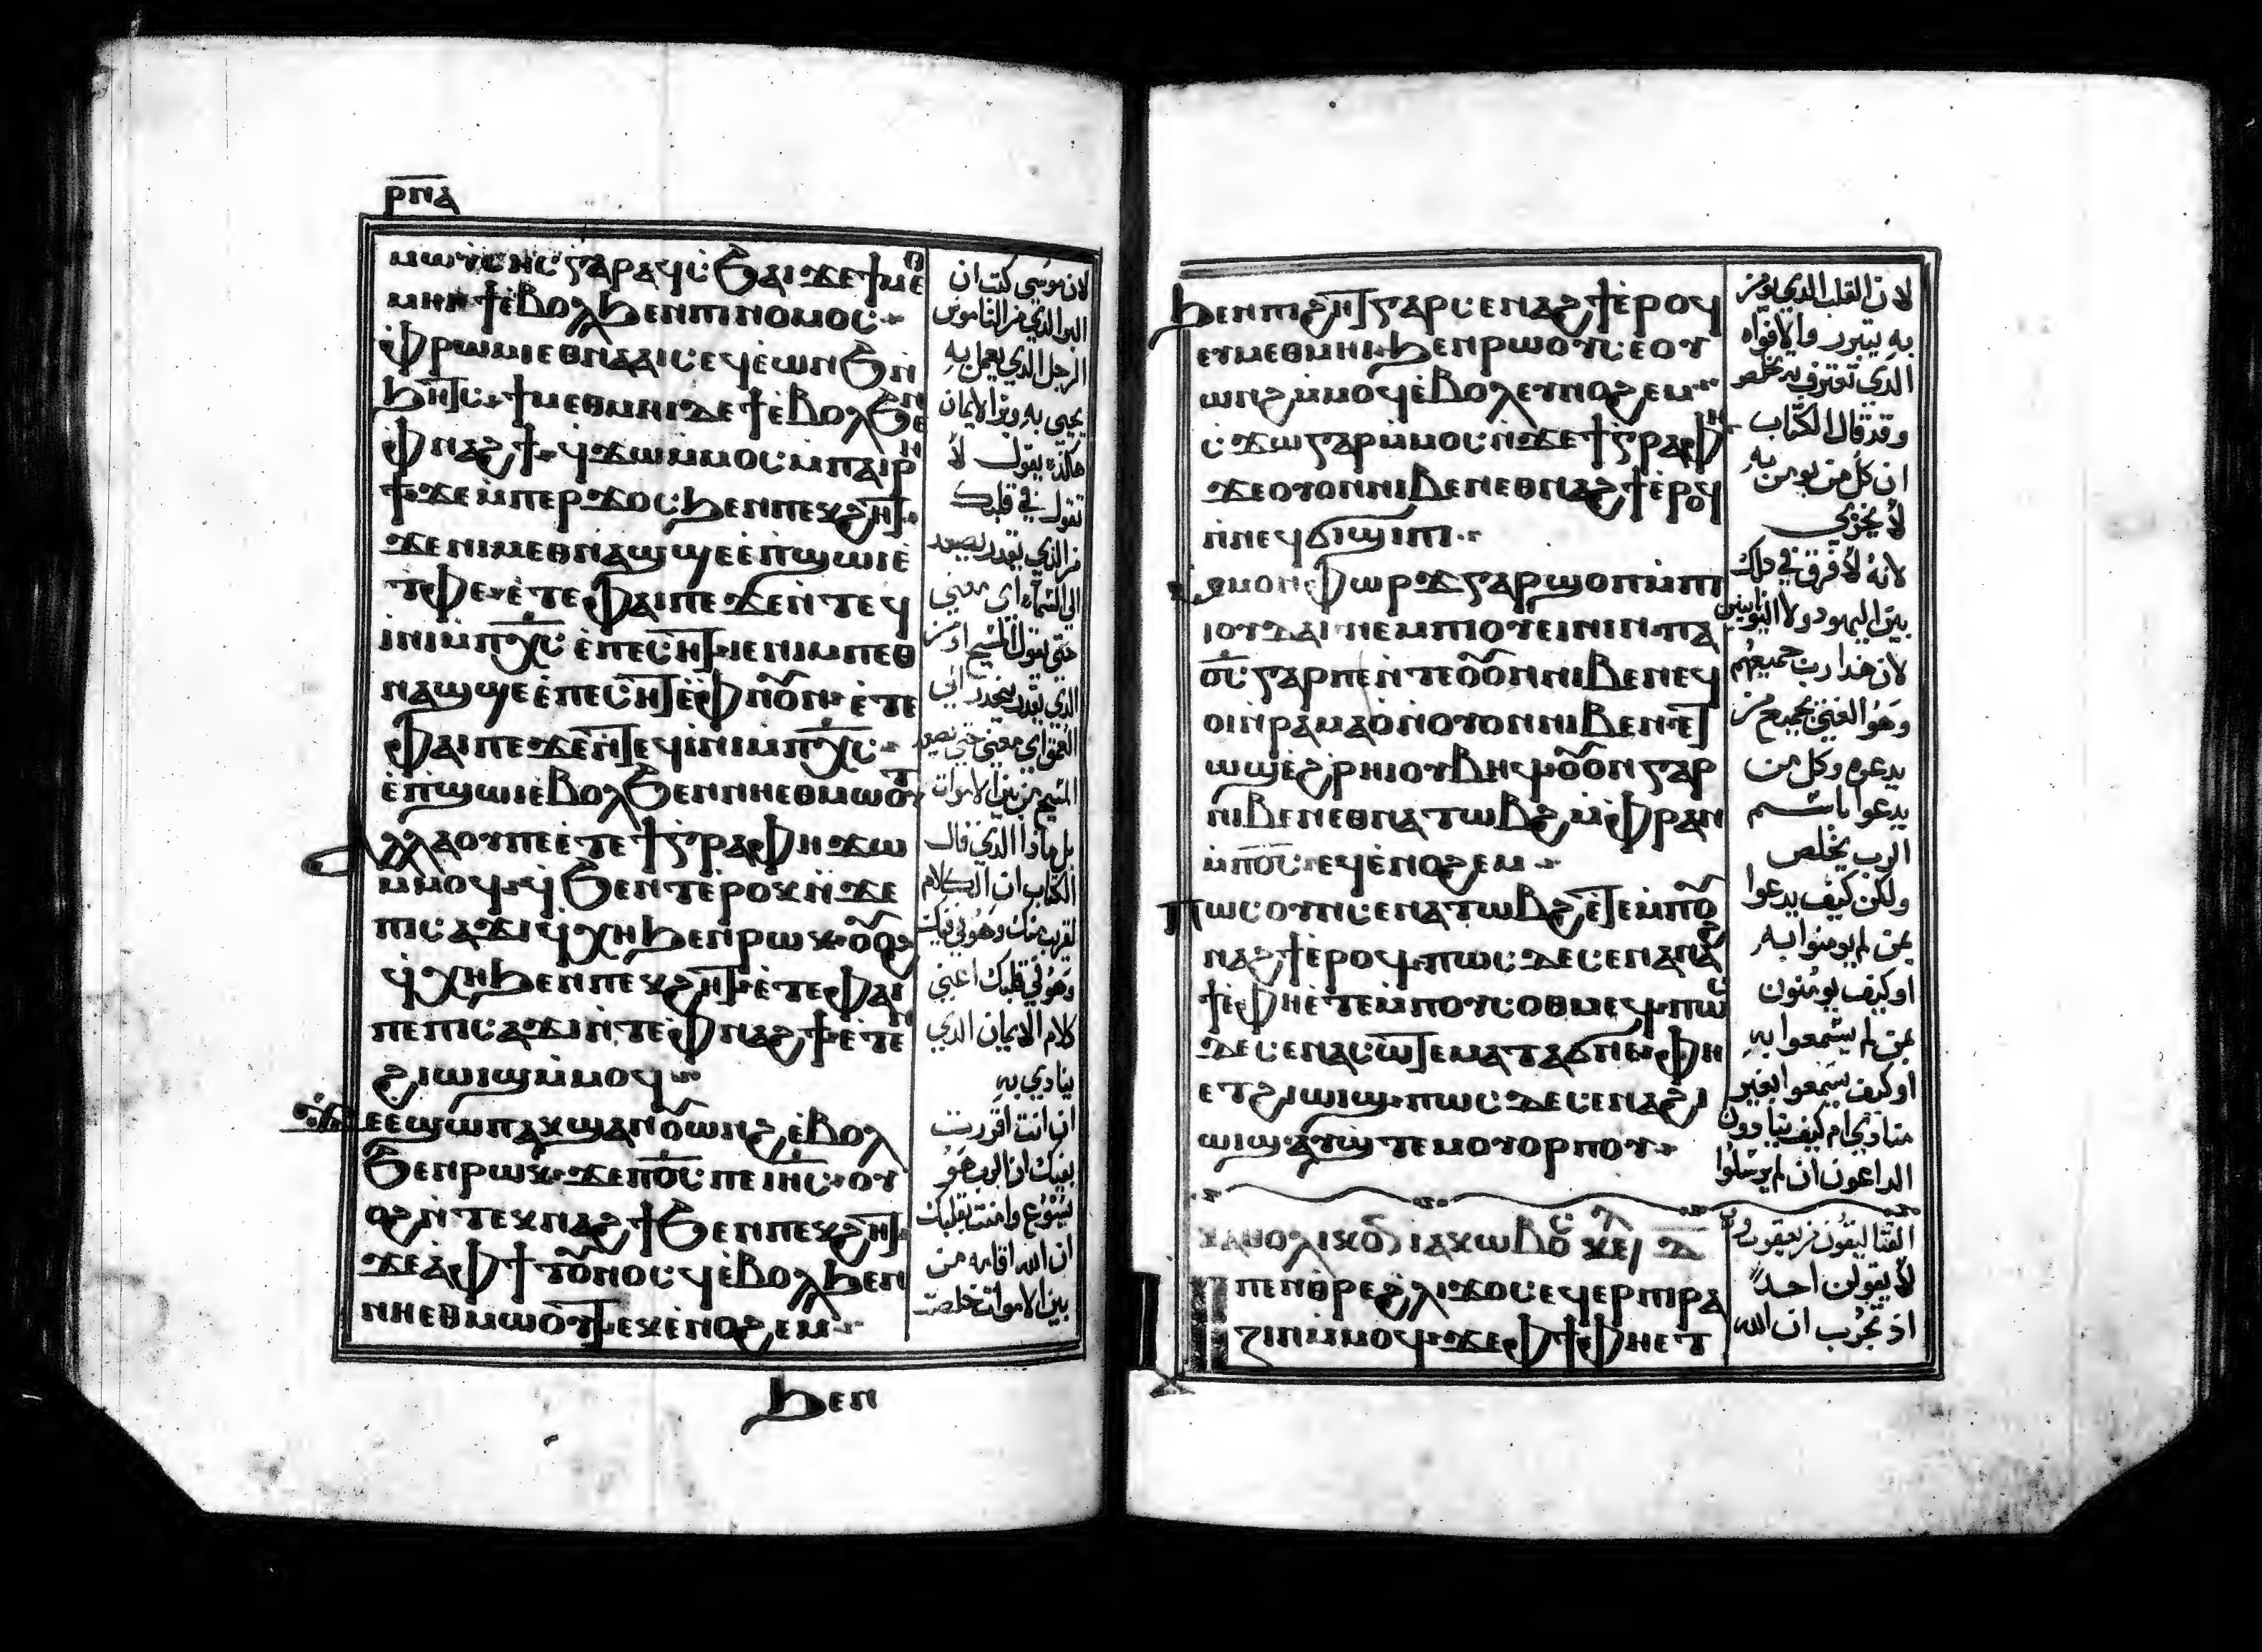 ⲣⲛⲁ
ⲙⲱⲩⲥⲏⲥ ⲅⲁⲣ ⲁϥⲥϧⲁⲓ ϫⲉ ϯⲙⲉⲑ
ⲙⲏⲓ ϯⲉⲃⲟⲗ ϧⲉⲛ ⲡⲓⲛⲟⲙⲟⲥ
ⲫⲣⲱⲙⲓ ⲉⲑⲛⲁⲁⲓⲥ ⲉϥⲉ̀ⲱⲛϧ ⲛ̀
ϧⲏⲧⲥ ϯⲙⲉⲑⲙⲏⲓ ⲇⲉ ϯⲉ̀ⲃⲟⲗ ϧⲉⲛ
ⲫⲛⲁϩϯ ϥϫⲱ ⲙ̀ⲙⲟⲥ ⲙ̀ⲡⲁⲓⲣⲏ
ϯ ϫⲉ ⲙ̀ⲡⲉⲣϫⲟⲥ ϧⲉⲛ ⲡⲉⲕϩⲏⲧ
ϫⲉ ⲛⲓⲙ ⲉⲑⲛⲁϣϣⲉ ⲉ̀ⲡ̀ϣⲱⲓ ⲉ̀
ⲧ̀ⲫⲉ ⲉ̀ⲧⲉ ⲫⲁⲓ ⲡⲉ ϫⲉ ⲛ̀ⲧⲉϥ
ⲓ̀ⲛⲓ ⲙ̀ⲡⲭ̅ⲥ̅ ⲉ̀ⲡⲉⲥⲏⲧ ⲓⲉ ⲛⲓⲙ ⲡⲉⲑ
ⲛⲁϣϣⲉ ⲉ̀ⲡⲉⲥⲏⲧ ⲉ̀ⲫⲛⲟⲩⲛ ⲉ̀ⲧⲉ
ⲫⲁⲓ ⲡⲉ ϫⲉ ⲛ̀ⲧⲉϥⲓ̀ⲛⲓ ⲙ̀ⲡⲭ̅ⲥ̅
ⲉ̀ⲡ̀ϣⲱⲓ ⲉ̀ⲃⲟⲗ ϧⲉⲛ ⲛⲏⲉⲑⲙⲱⲟⲩⲧ
ⲁⲗⲗⲁ ⲟⲩ ⲡⲉ ⲉ̀ⲧⲉ ϯⲅⲣⲁⲫⲏ ϫⲱ
ⲙ̀ⲙⲟϥ ϥ̀ϧⲉⲛⲧ ⲉ̀ⲣⲟⲕ ⲛ̀ϫⲉ
ⲡⲓⲥⲁϫⲓ ϥ̀ⲭⲏ ϧⲉⲛ ⲣⲱⲕ ⲟⲩⲟϩ
ϥ̀ⲭⲏ ϧⲉⲛ ⲡⲉⲕϩⲏⲧ ⲉ̀ⲧⲉ ⲫⲁⲓ
ⲡⲉ ⲡⲓⲥⲁϫⲓ ⲛ̀ⲧⲉ ⲫⲛⲁϩϯ ⲉ̀ⲧⲉⲛ
ϩⲓⲱⲓϣ ⲙ̀ⲙⲟϥ
ϫⲉ ⲉϣⲱⲡ ⲁⲕϣⲁⲛⲟⲩⲱⲛϩ ⲉ̀ⲃⲟⲗ
ϧⲉⲛ ⲣⲱⲕ ϫⲉ ⲡ̅ⲟ̅ⲥ̅ ⲡⲉ ⲓⲏⲥ ⲟⲩ
ⲟϩ ⲛ̀ⲧⲉⲕⲛⲁϩϯ ϧⲉⲛ ⲡⲉⲕϩⲏⲧ
ϫⲉ ⲁ̀ ⲫϯ ⲧⲟⲩⲛⲟⲥϥ ⲉ̀ⲃⲟⲗ ϧⲉⲛ
ⲛⲏⲉⲑⲙⲱⲟⲩⲧ ⲉⲕⲉ̀ⲛⲟϩⲉⲙ
ϧⲉⲛ
لان موسى كتب ان
البر الذي من الناموس
الرجل الذي يعمل به
يحيى به وبر الايمان
هكذا يقول لا
تقول في قلبك
من الذي يقدر يصعد
الى السماء اي معنى
حتى ينزل المسيح او من
الذي يقدر ينحدر الى
العمق اي معنى حتى يصعد
المسيح من بين الاموات
بل ماذا الذي قال
الكتاب ان الكلام
لقريب منك وهو في فيك
وهو في قلبك اعني
كلام الايمان الذي
ينادي به
ان انت اقررت
بفيك ان الرب هو
يسوع وامنت بقلبك
ان الله اقامه من
بين الاموات خلصت
ϧⲉⲛ ⲡϩⲏⲧ ⲅⲁⲣ ⲥⲉⲛⲁϩϯ ⲉ̀ⲣⲟϥ
ⲉⲩⲙⲉⲑⲙⲏⲓ ϧⲉⲛ ⲣⲱⲟⲩ ⲥⲉⲟⲩ
ⲱⲛϩ ⲙ̀ⲙⲟϥ ⲉ̀ⲃⲟⲗ ⲉⲩⲛⲟϩⲉⲙ
ⲥϫⲱ ⲅⲁⲣ ⲙ̀ⲙⲟⲥ ⲛ̀ϫⲉ ϯⲅⲣⲁⲫⲏ
ϫⲉ ⲟⲩⲟⲛ ⲛⲓⲃⲉⲛ ⲉⲑⲛⲁϩϯ ⲉ̀ⲣⲟϥ
ⲛ̀ⲛⲉϥϭⲓϣⲓⲡⲓ
ⲙ̀ⲙⲟⲛ ⲫⲱⲣϫ ⲅⲁⲣ ϣⲟⲡ ⲙ̀ⲡⲓ
ⲓⲟⲩⲇⲁⲓ ⲛⲉⲙ ⲡⲓⲟⲩⲉⲓⲛⲓⲛ ⲡⲁⲓ
ⲟ̅ⲥ̅ ⲅⲁⲣ ⲡⲉ ⲛ̀ⲧⲉ ⲟⲩⲟⲛ ⲛⲓⲃⲉⲛ ⲉϥ
ⲟⲓ ⲛ̀ⲣⲁⲙⲁⲟ̀ ⲛ̀ⲟⲩⲟⲛ ⲛⲓⲃⲉⲛ ⲉⲧ
ⲱϣ ⲉ̀ϩ̀ⲣⲏⲓ ⲟⲩⲃⲏϥ ⲟⲩⲟⲛ ⲅⲁⲣ
ⲛⲓⲃⲉⲛ ⲉⲑⲛⲁⲧⲱⲃϩ ⲙ̀ⲫⲣⲁⲛ
ⲙ̀ⲡ̅ⲟ̅ⲥ̅ ⲉϥⲉ̀ⲛⲟϩⲉⲙ
ⲡⲱⲥ ⲟⲩⲛ ⲥⲉⲛⲁⲧⲱⲃϩ ⲉ̀ⲧⲉ ⲙ̀ⲡⲟⲩ
ⲛⲁϩϯ ⲉ̀ⲣⲟϥ ⲡⲱⲥ ⲇⲉ ⲥⲉⲛⲁⲛⲁϩ
ϯ ⲉ̀ⲫⲏ ⲉ̀ⲧⲉ ⲙ̀ⲡⲟⲩⲥⲟⲑⲙⲉϥ ⲡⲱⲥ
ⲇⲉ ⲥⲉⲛⲁⲥⲱⲧⲉⲙ ⲁⲧϭⲛⲉ ⲫⲏ
ⲉⲧϩⲓⲱⲓϣ ⲡⲱⲥ ⲇⲉ ⲥⲉⲛⲁϩⲓ
ⲱⲓϣ ⲁⲩϣⲧⲉⲙⲟⲩⲟⲣⲡⲟⲩ
ⲡⲉⲛⲑⲣⲉ ϩⲗⲓ ϫⲟⲥ ⲉϥⲉⲣⲡⲓⲣⲁ
ⲍⲓⲛ ⲙ̀ⲙⲟϥ ϫⲉ ⲫϯ ⲫⲏⲉⲧ
لان القلب الذي يومن
به يتبرر والافواه
الذي تعترف به تخلص
وقد قال الكتاب
ان كل من يومن به
لا يخزى
لانه لا فرق في ذلك
بين اليهود ولا اليونانيين
لان هذا رب جميعهم
وهو الغني بجميع من
يدعوه وكل من
يدعوا باسم
الرب يخلص
ولكن كيف يدعوا
بمن لم يومنوا به
او كيف يومنون
بمن لم يسمعوا به
او كيف يسمعوا بغير
منادي ام كيف ينادون
الداعون ان لم يرسلوا
لا يقولن احد
اذ تجرب ان الله